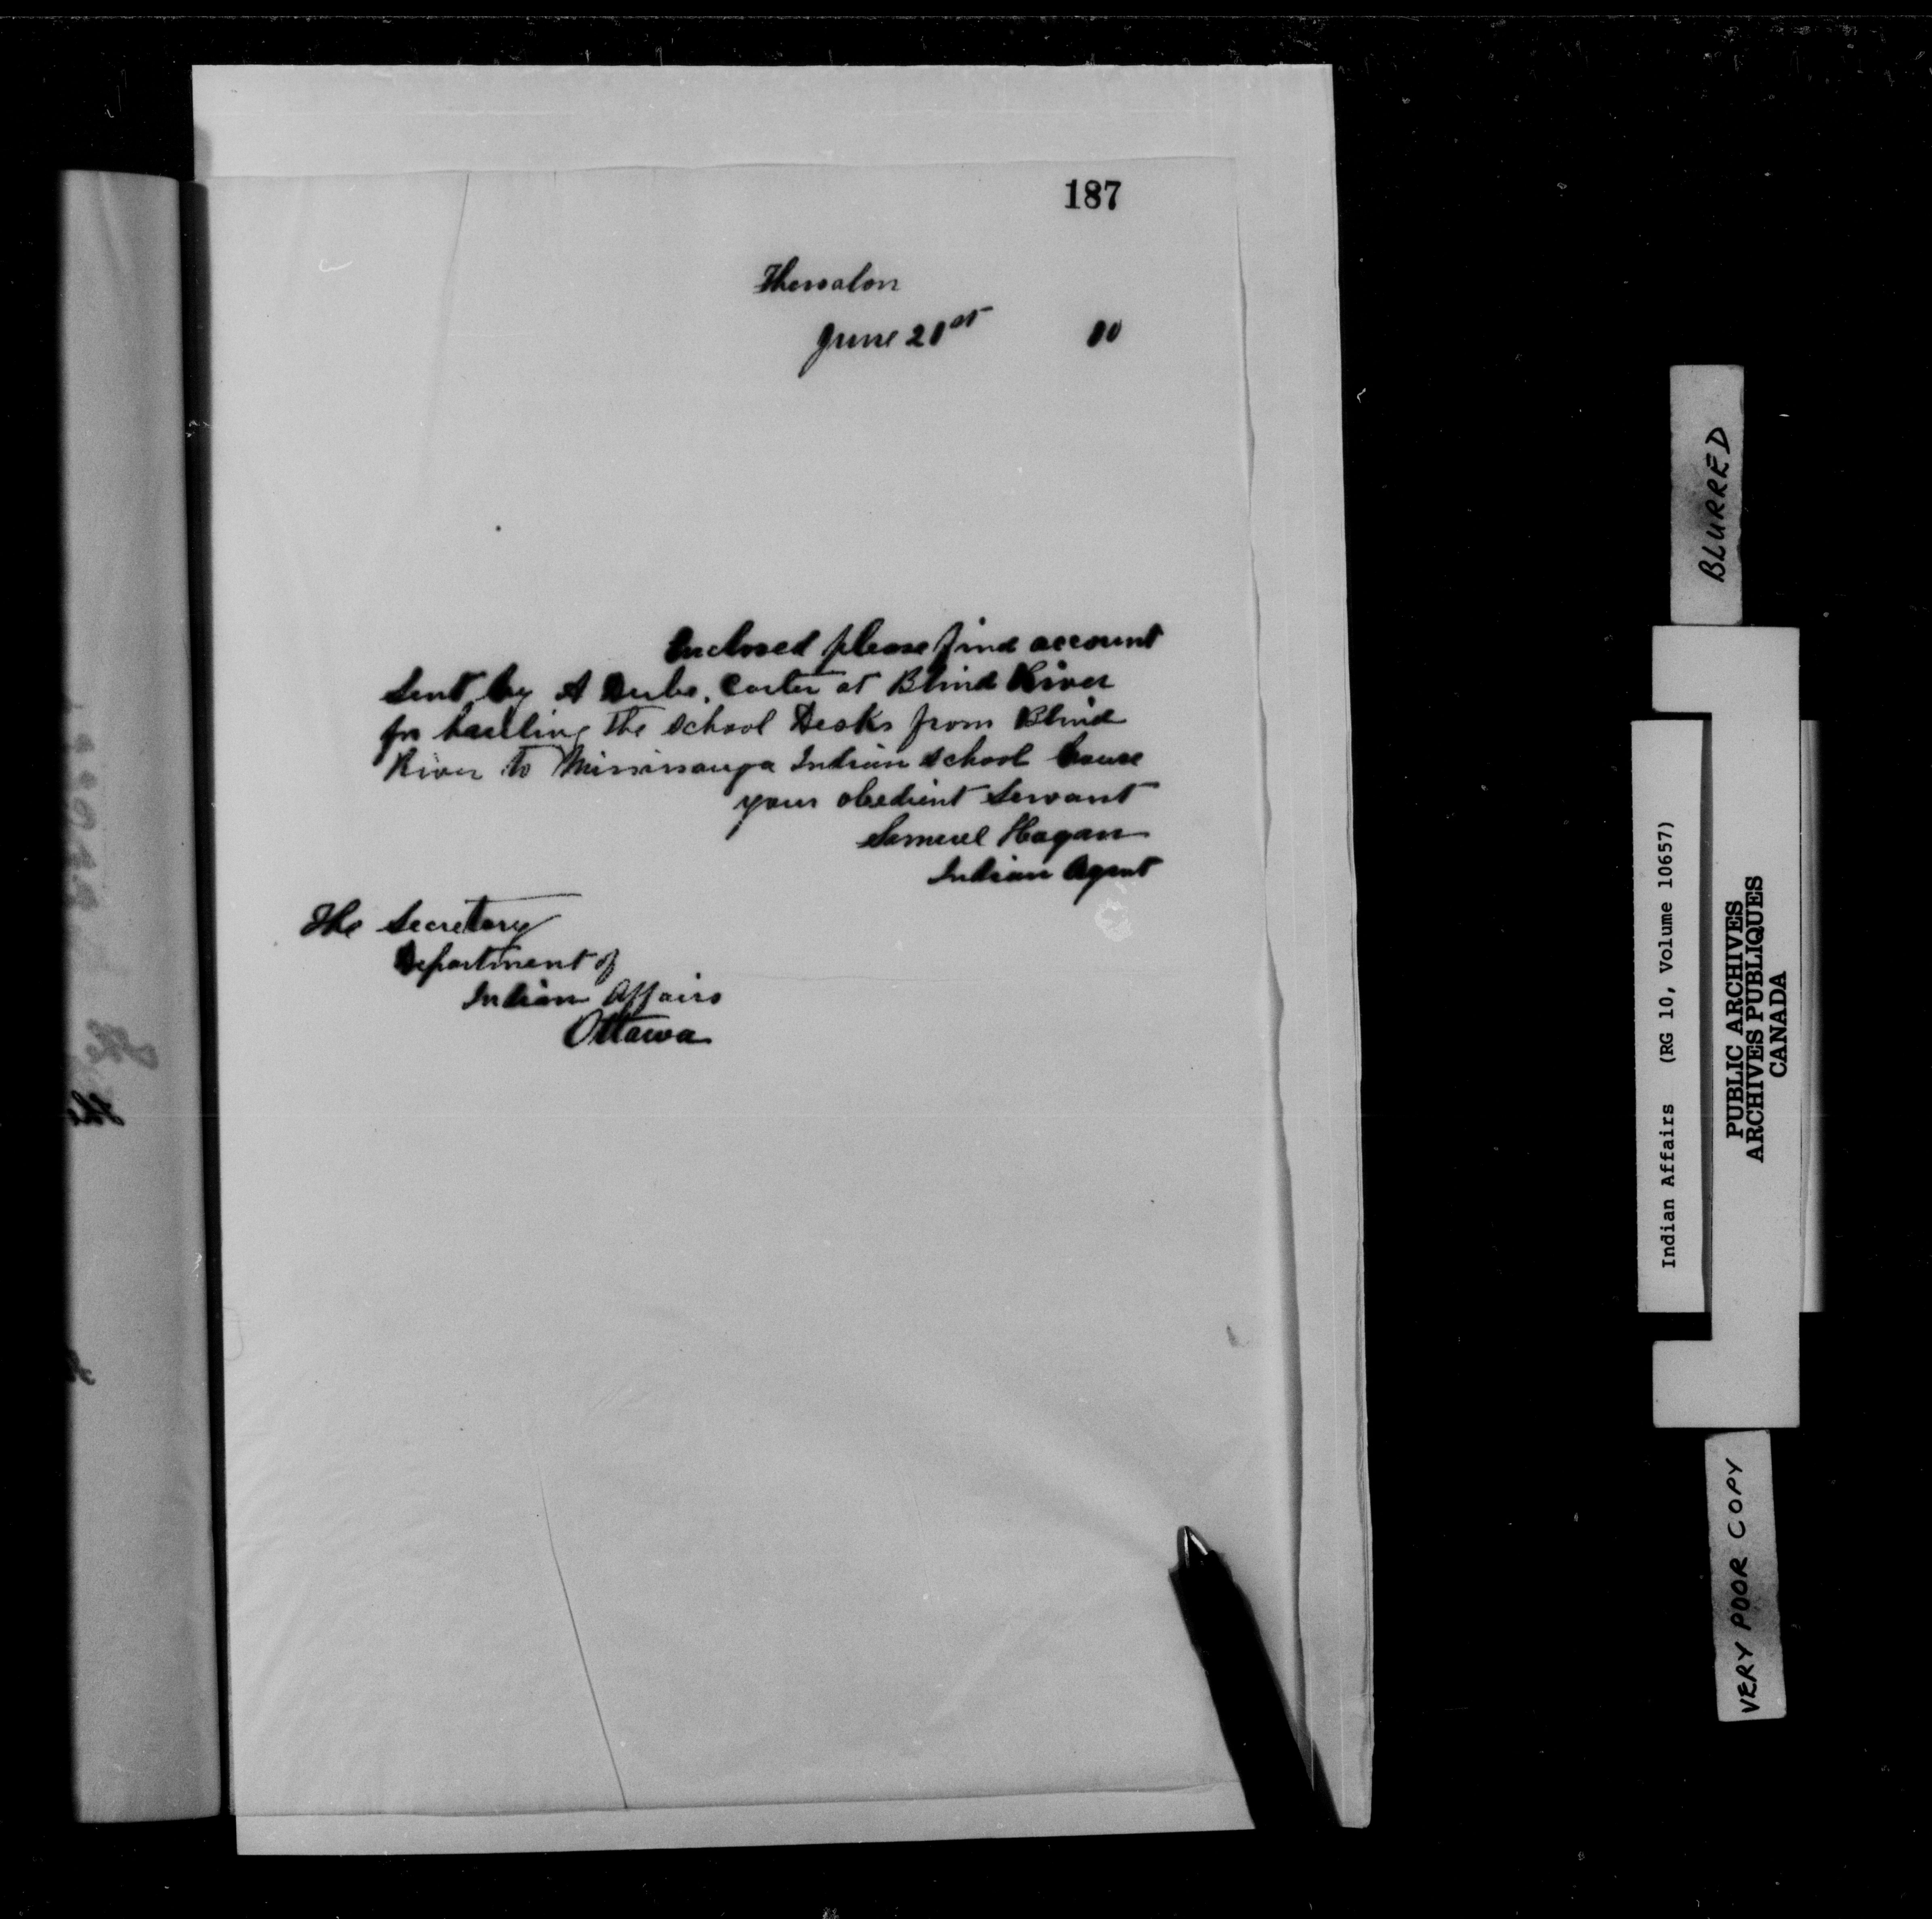 187
Thessalon
June 21st 00
Enclosed please find account
Sent by A Dube, Carter at Blind River
for hauling the School Desks from Blind
River to Mississauga Indian School house
your obedient Servant
Samuel Hagan
Indian Agent
The Secretary
Department of
Indian Affairs
Ottawa
BLURRED
Indian Affairs (RG 10, Volume 10657)
PUBLIC ARCHIVES
ARCHIVES PUBLIQUES
CANADA
VERY POOR COPY